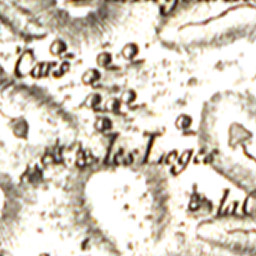 Cars
les Loges
la C